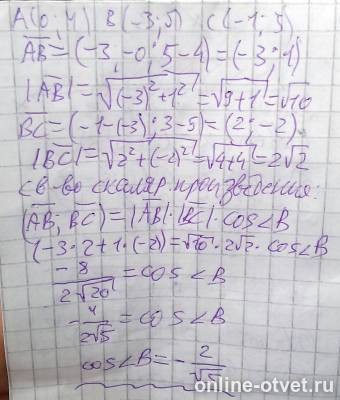 A(0; 4) B(-3; 5) C(-1; 3)
AB=(-3,-0; 5-4)=(-3; 1)
|AB|=√((-3)²+1²)=√(9+1)=√10
BC=(-1-(-3); 3-5)=(2; -2)
|BC|=√(2²+(-2)²)=√(4+4)=2√2
св-во скаляр.произведения:
(AB; BC)=|AB|·|BC|·cos∠B
(-3·2+1·(-2)=√10·2√2·cos∠B
-8/2√20=cos∠B
-4/2√5=cos∠B
cos∠B=-2/√5
online-otvet.ru